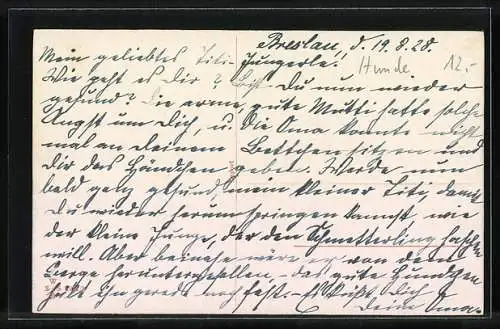 Breslau, d. 19.8.28.
Mein geliebtes Titi-Jungerle!
Hunde 12.-
Wie geht es Dir? Bist Du nun wieder
gesund? Die arme, gute Mutti hatte solche
Angst um Dich, u. die Oma konnte nicht
mal an Deinem Bettchen sitzen und
Dir das Händchen geben. Werde nun
bald ganz gesund, mein kleiner Titi, damit
Du wieder herumspringen kannst, wie
der kleine Junge, der den Schmetterling haschen
will. Aber beinahe wäre er von dem
Berge heruntergefallen, das gute Hundchen
hält ihn gerade noch fest. Es küßt Dich
Deine Oma.